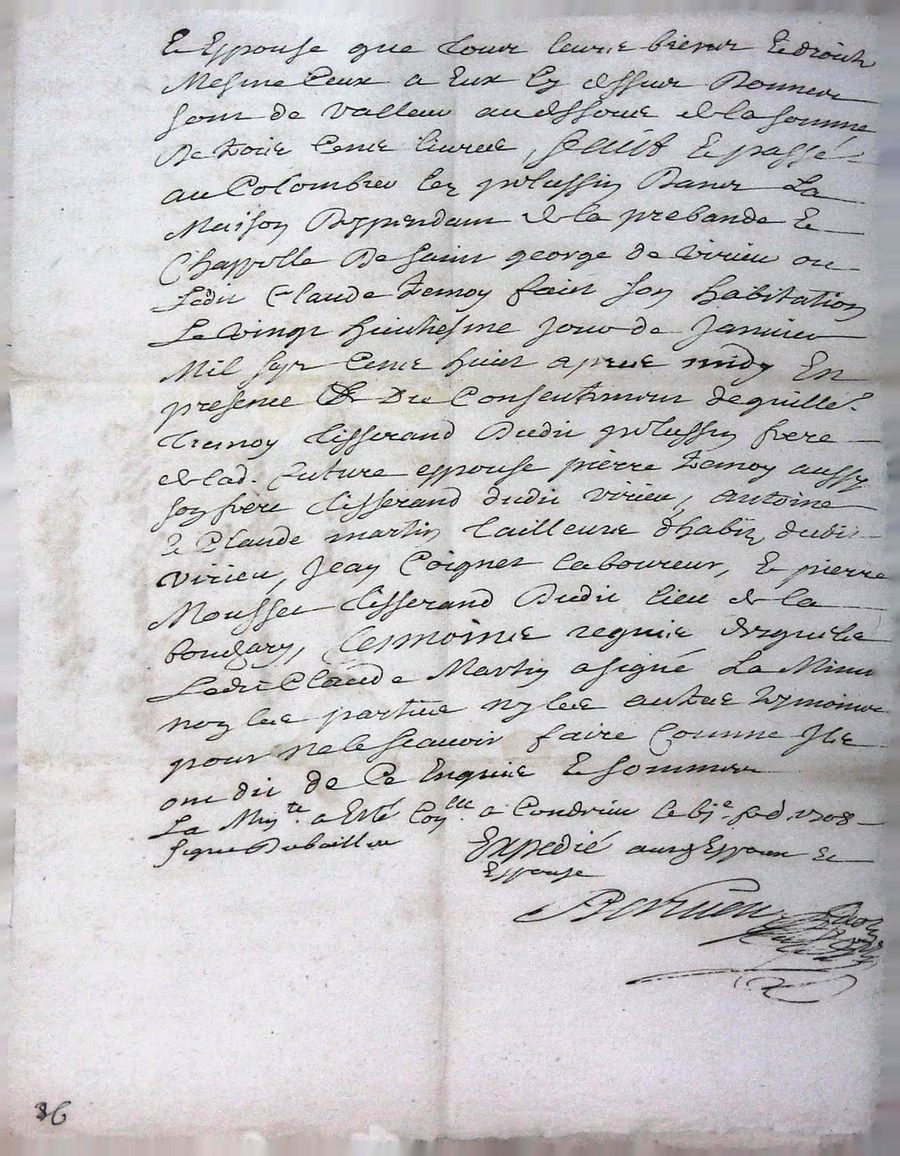 & Espouse que tous leurs biens & droits
Mesme Ceux a Eux Cy dessus Donnes
sont de valleur au dessous de la somme
De trois Cents livres, faict & passé
au Colombier les pelussin Dans La
Maison Deppendant de la prebande &
Chappelle De Saint george de virieu ou
Ledit Claude Temoy fait son habitation
Le vingt huictiesme jour de Janvier
Mil sept Cents huict apres midy En
presence & Du Consentement de guille.
Temoy tisserand Dudit pelussin frere
de lad. future espouse pierre Temoy aussy
son frere tisserand dudit virieu, antoine
& Claude martin tailleurs d'habitz dudit
virieu, Jean Coignet laboureur, & pierre
Mousset tisserand Dudit lieu de la
tesmoins requis desquels
Ledit Claude Martin a signé La Minu
non les parties ny les autres tesmoins
pour ne le scavoir faire Comme Ils
ont dit de Ce Enquis & sommes
La Min.te a Esté Con.llee a Condrieu le 1708
signé Dubaillou
Expedié auxd Espoux &
Espouse